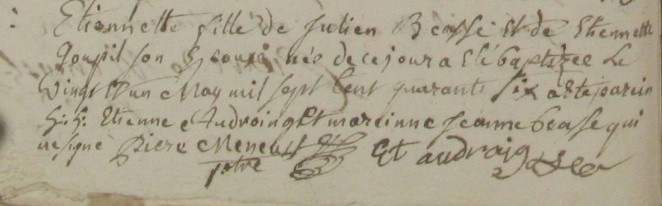 Etiennette fille de Julien Beassé et de Etiennette
Goupil son Epouse née de ce jour a eté baptizee le
Vingt et un May mil sept Cent quarante six a eté parein
h: h: Etienne Audroing et mareinne Jeanne beasse qui
ne signe Piere Meneust Et audroing
ptre